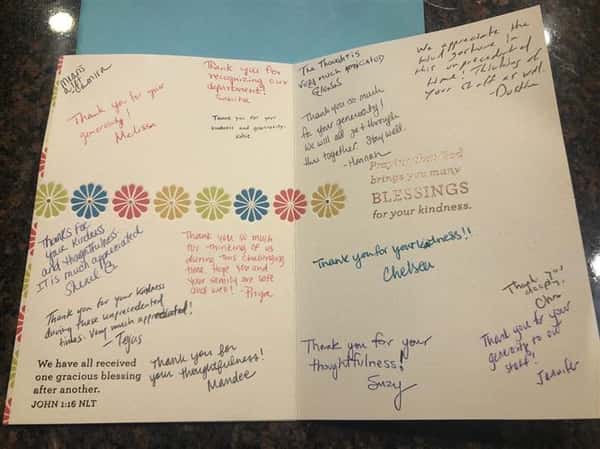 Thank you for your
generosity!
Melissa
Thank you for
recognizing our
department!
Thank you for your
kindness and generosity.
Katie
Thanks for
your kindness
and thoughtfulness
IT is much appreciated
Thank you so much
for thinking of us
during this challenging
time. Hope you and
your family are safe
and well! - Priya
Thank you for your kindness
during these unprecedented
times. Very much appreciated!
- Tejas
Thank you for
your thoughtfulness!
Mandee
We have all received
one gracious blessing
after another.
JOHN 1:16 NLT
The Thought is
very much
Thank you so much
for your generosity!
We will all get through
this together. Stay well.
- Hannah
We appreciate the
kind gesture in
this unprecedented
time! Thinking of
your staff as well.
- Dustin
Praying that God
brings you many
BLESSINGS
for your kindness.
Thank you for your kindness!!
Chelsea
Thank you for your
thoughtfulness!
Suzy
Thank you
Thank you for your
generosity to our
staff!
Jennifer